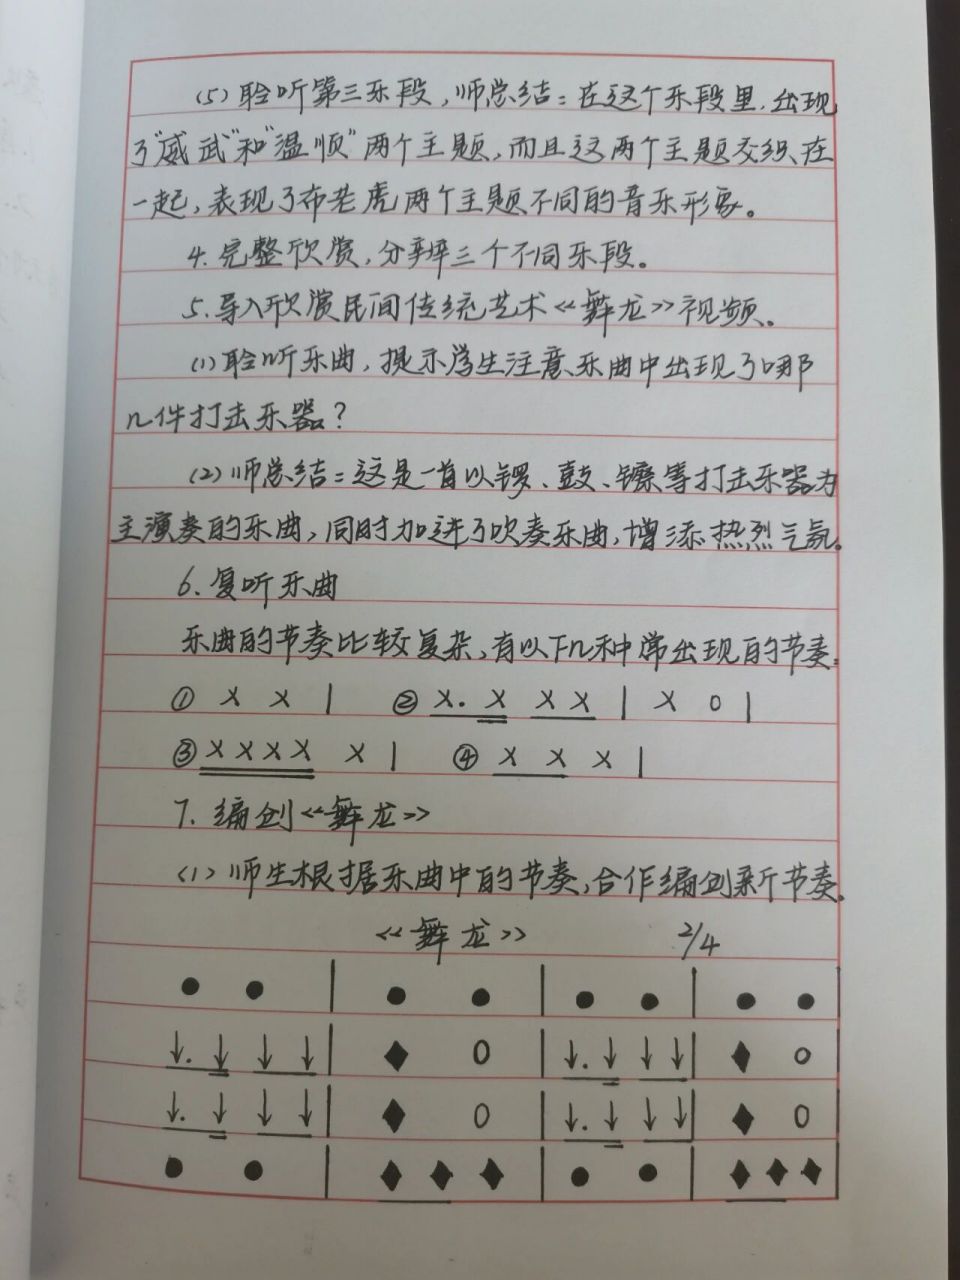 (5)聆听第三乐段,师总结:在这个乐段里,出现
了"威武"和"温顺"两个主题,而且这两个主题交织在
一起,表现了布老虎两个主题不同的音乐形象。
4.完整欣赏,分辨三个不同乐段。
5.导入欣赏民间传统艺术《舞龙》视频。
(1)聆听乐曲,提示学生注意乐曲中出现了哪
几件打击乐器?
(2)师总结:这是一首以锣、鼓、镲等打击乐器为
主演奏的乐曲,同时加进了吹奏乐曲,增添热烈气氛。
6.复听乐曲
乐曲的节奏比较复杂,有以下几种常出现的节奏:
① X X | ② X. X X X | X 0 |
③ X X X X X | ④ X X X |
7.编创《舞龙》
(1)师生根据乐曲中的节奏,合作编创新节奏。
《舞龙》 2/4
● ● | ● ● | ● ● | ● ● |
↓. ↓ ↓ ↓ | ♦ 0 | ↓. ↓ ↓ ↓ | ♦ 0 |
↓. ↓ ↓ ↓ | ♦ 0 | ↓. ↓ ↓ ↓ | ♦ 0 |
● ● | ♦ ♦ ♦ | ● ● | ♦ ♦ ♦ |